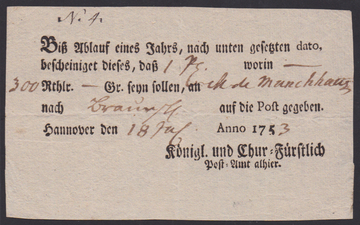 N. 4.
Biß Ablauf eines Jahrs, nach unten gesetzten dato,
bescheiniget dieses, daß 1 worin —
300 Rthlr. — Gr. seyn sollen, an M de Munchhaus
nach Braunsch auf die Post gegeben.
Hannover den 18 Anno 1753
Königl. und Chur-Fürstlich
Post-Amt alhier.